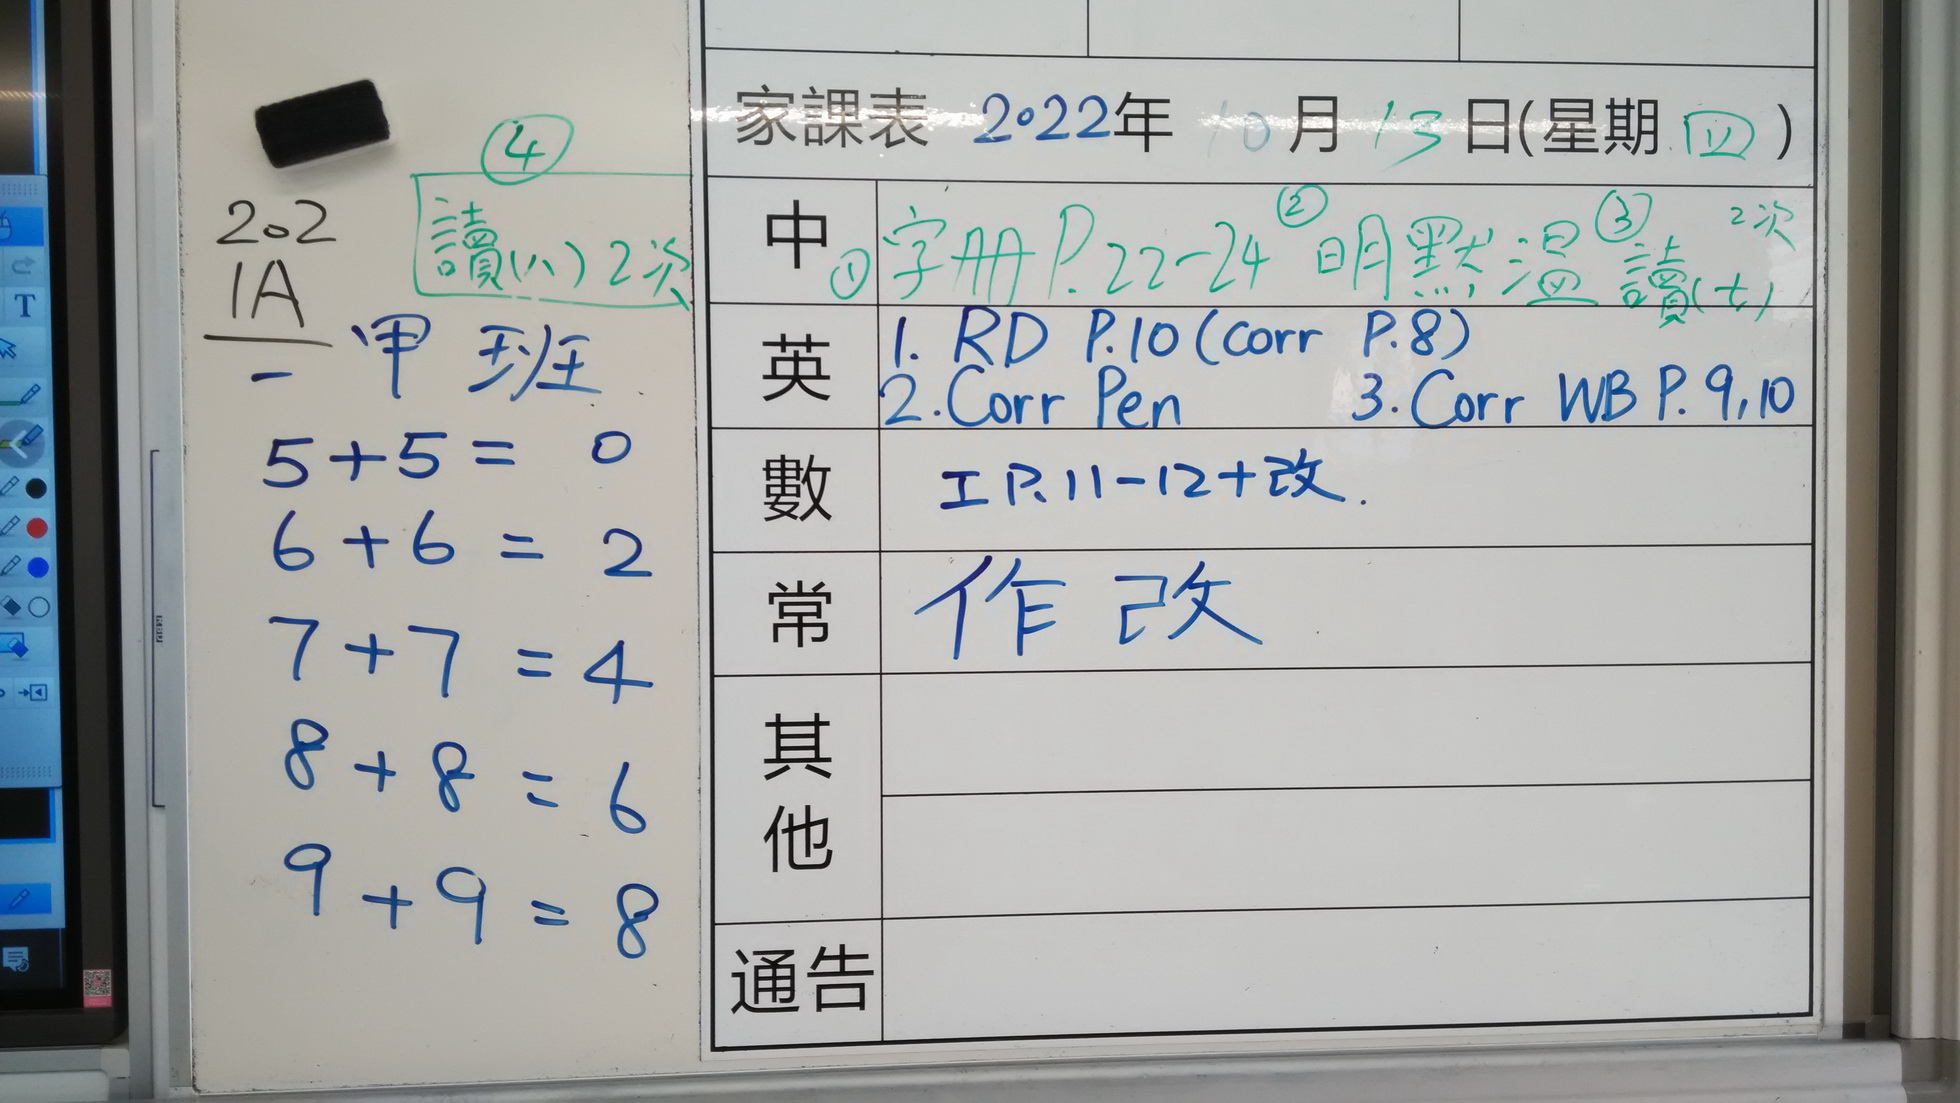 ④
讀(八)2次
202
1A
一甲班
5+5= 0
6+6=2
7+7=4
8+8=6
9+9=8
家課表 2022年 10月13日(星期四)
中 ①字册P.22-24 ②明默溫 ③讀(七) 2次
英 1. RD P.10 (corr P.8)
2. Corr Pen 3. Corr WB P. 9,10
數 工 P.11-12+改.
常 作改
其他
通告
T